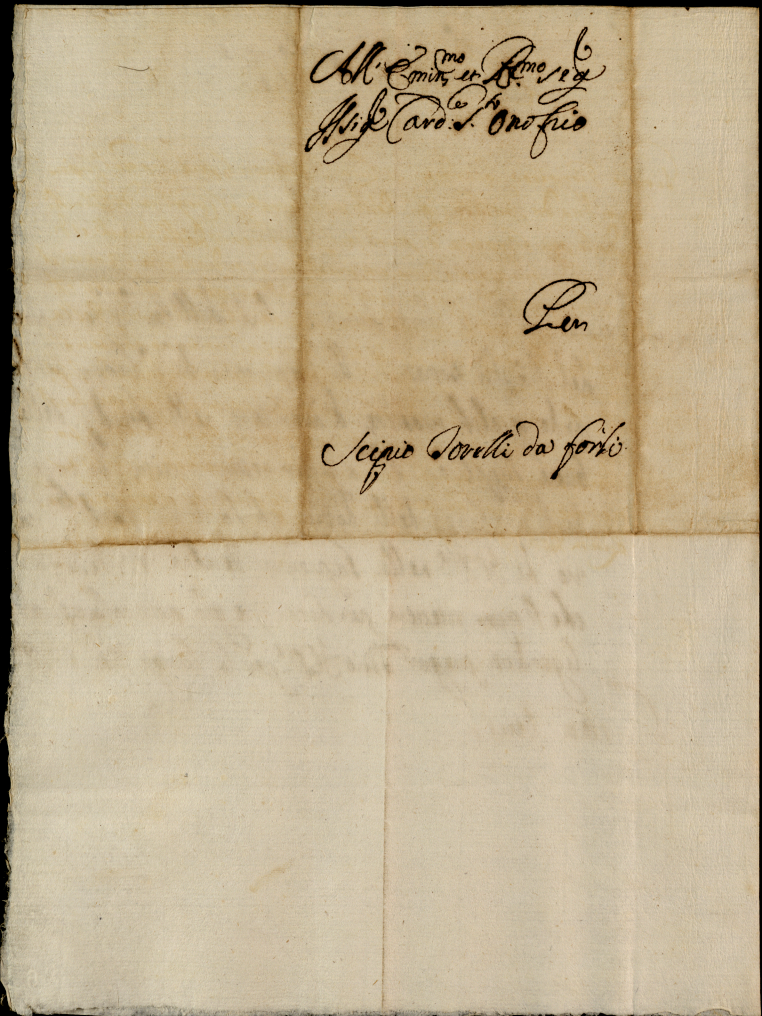 All' Emin.mo et R.mo Sig.r
Il Sig.r Card.le S.to Onofrio
Per
Scipio Torelli da Forlì